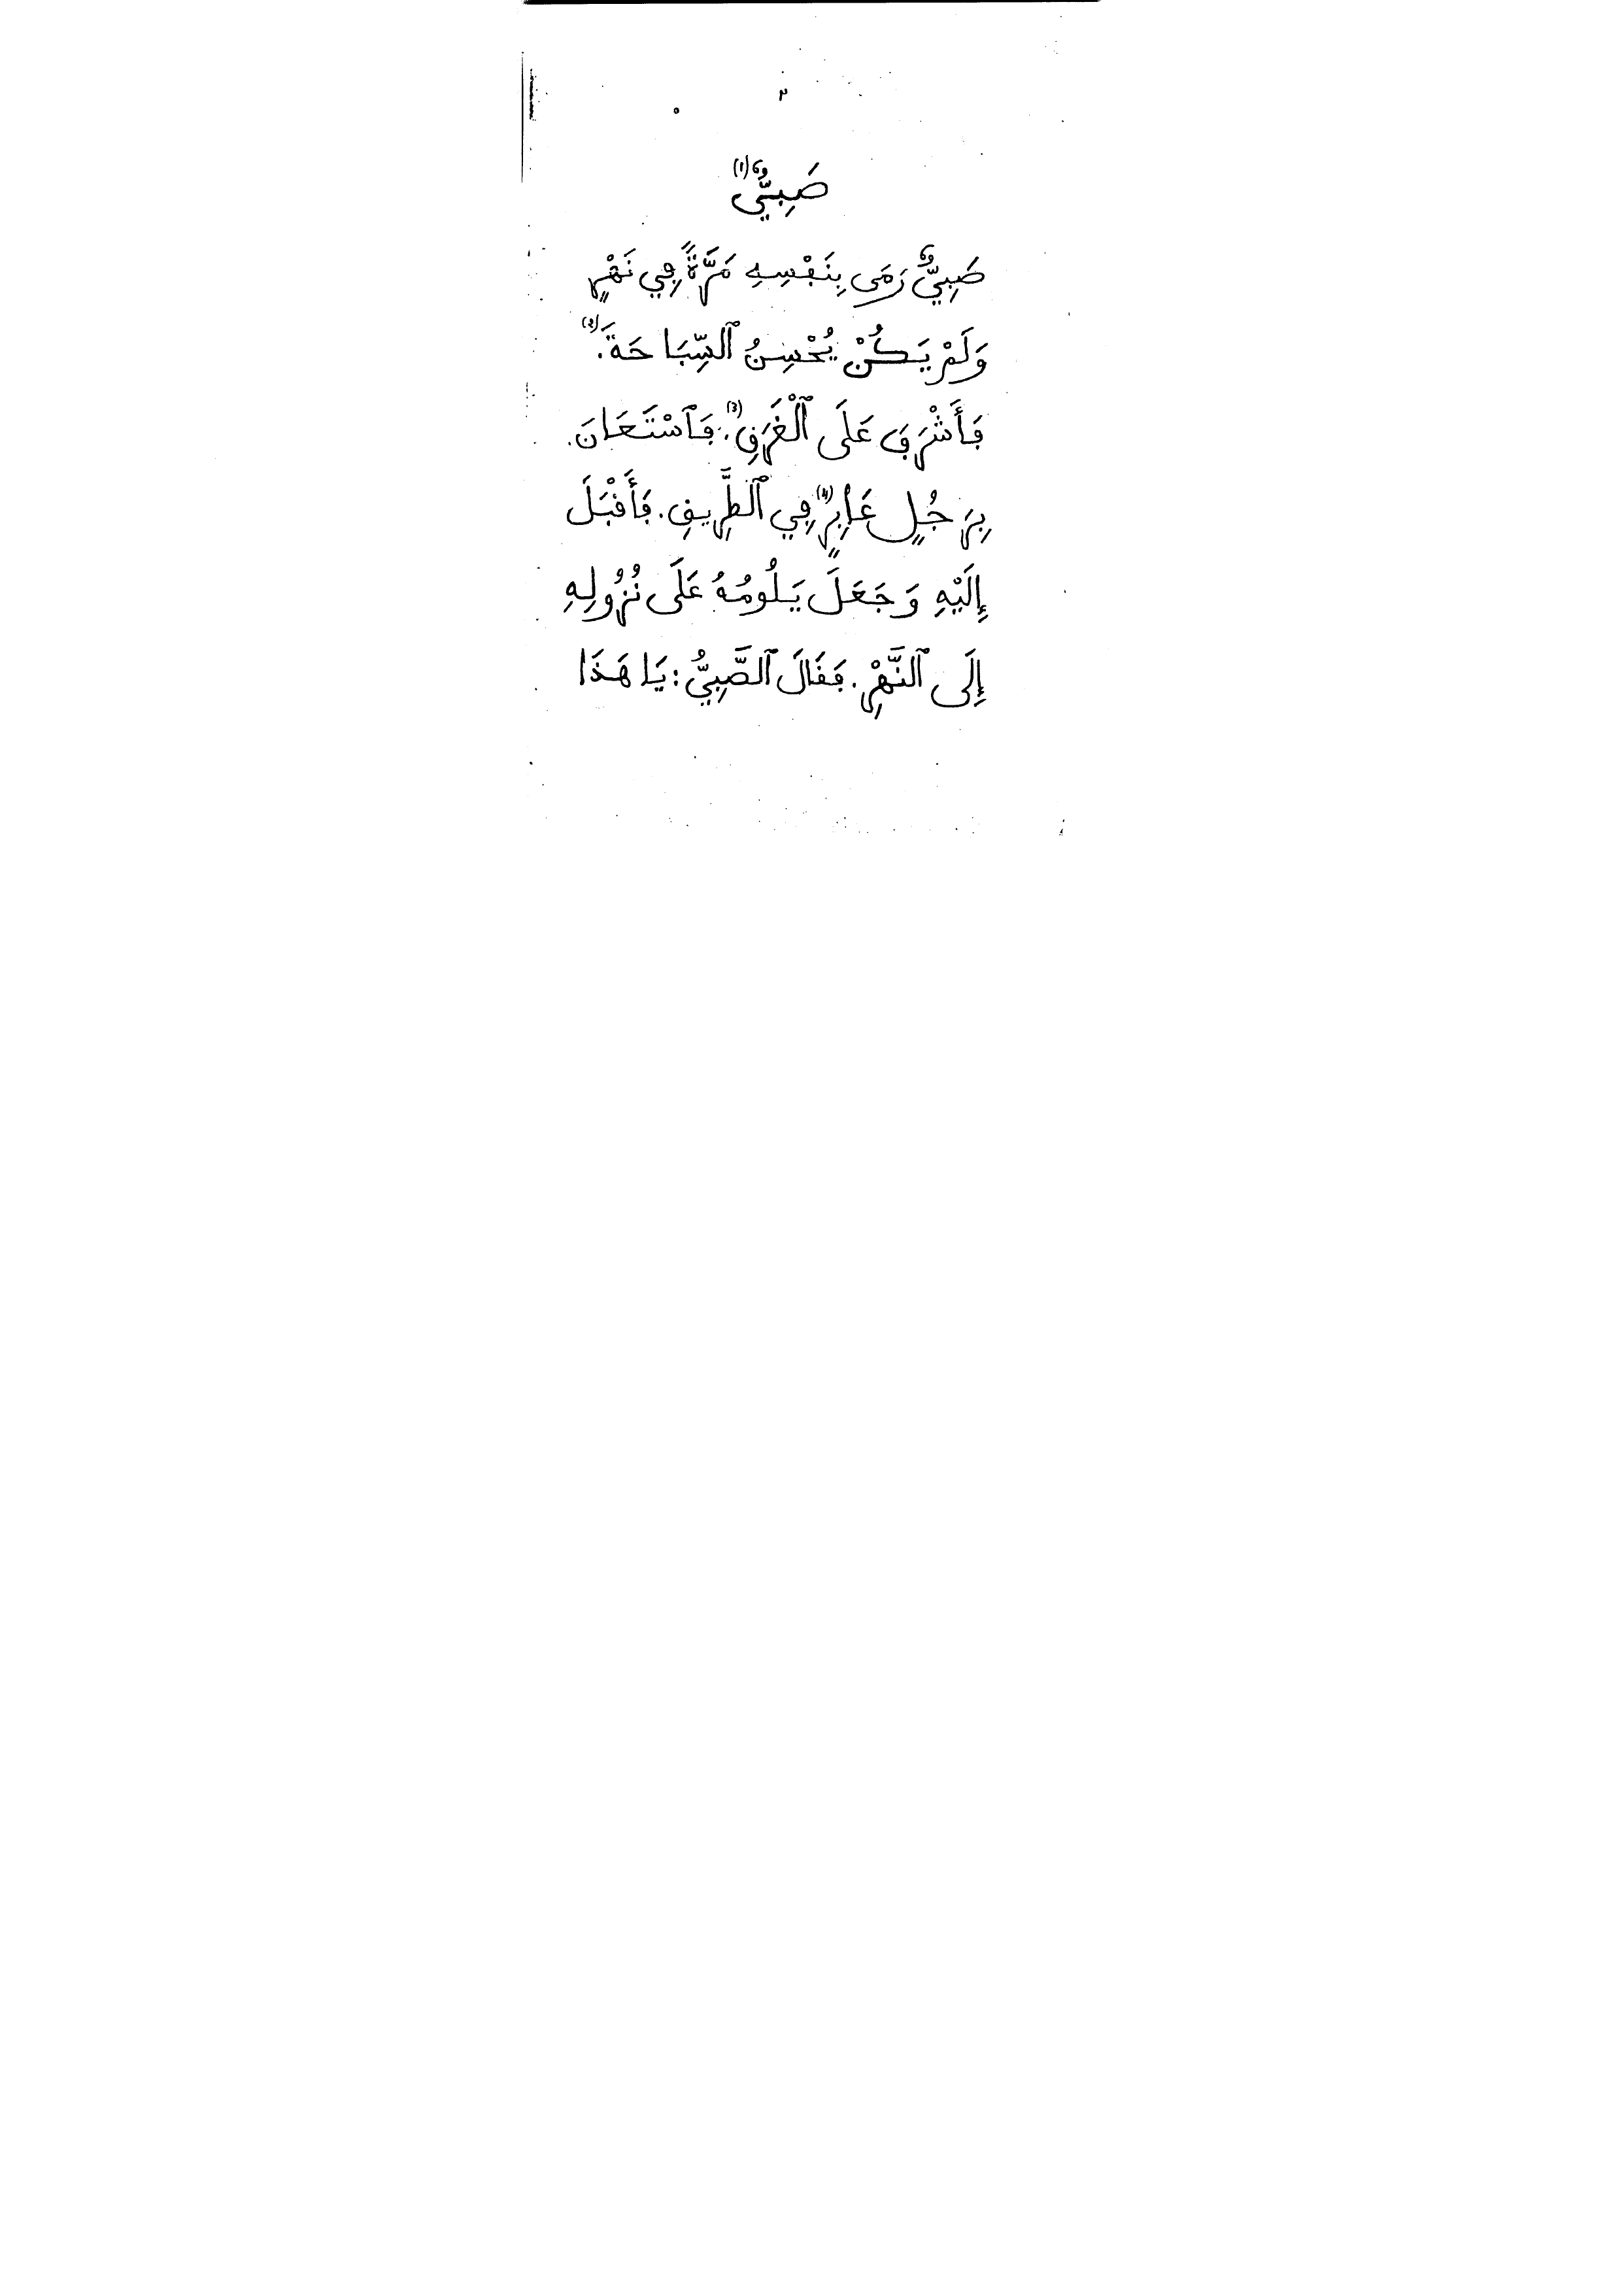 ٣
صَبِيٌّ (1)
صَبِيٌّ رَمَى بِنَفْسِهِ مَرَّةً فِي نَهْرٍ
وَلَمْ يَكُنْ يُحْسِنُ ٱلسِّبَاحَةَ (2).
فَأَشْرَفَ عَلَى ٱلْغَرَقِ (3). فَٱسْتَعَانَ
بِرَجُلٍ عَابِرٍ (4) فِي ٱلطَّرِيقِ. فَأَقْبَلَ
إِلَيْهِ وَجَعَلَ يَلُومُهُ عَلَى نُزُولِهِ
إِلَى ٱلنَّهْرِ. فَقَالَ ٱلصَّبِيُّ: يَا هَذَا